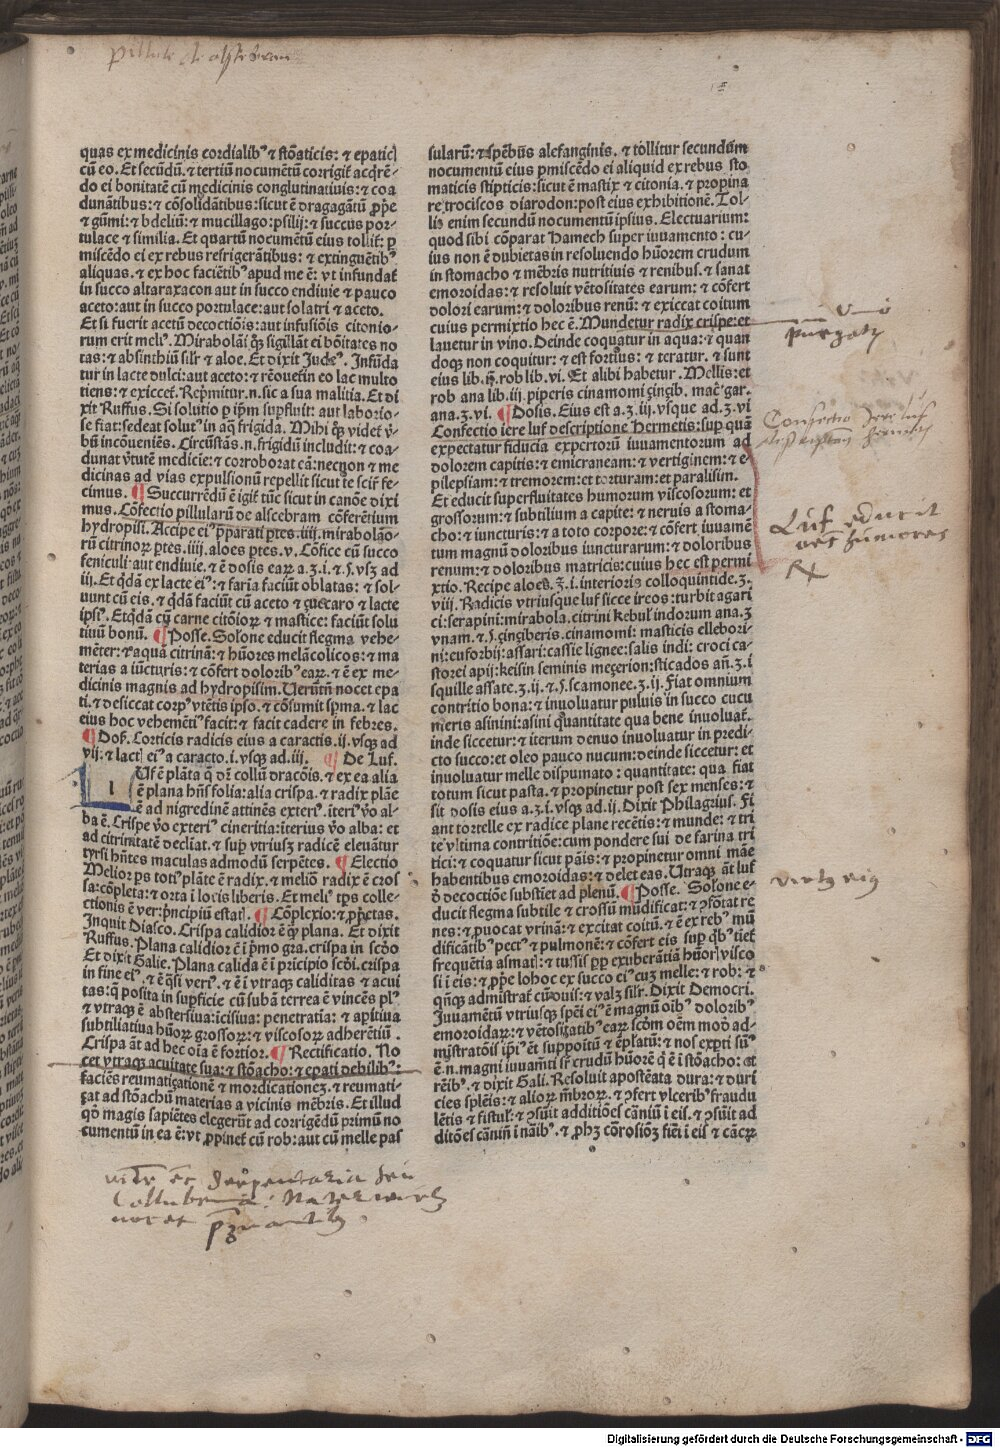 pillule de alscebram
quas ex medicinis cordialibꝰ ⁊ stõaticis: ⁊ epatic̨
cũ eo. Et secũdũ. ⁊ tertiũ nocumẽtũ corrigit᷑ acq̃re͂-
do ei bonitatẽ cũ medicinis conglutinatiuis: ⁊ coa
dunãtibus: ⁊ cõsolidãtibus: sicut ẽ dragagãtũ ꝓp̃e
⁊ gũmi: ⁊ bdeliũ: ⁊ mucillago: psilij: ⁊ succus por-
tulace ⁊ similia. Et quartũ nocumẽtũ eius tollit᷑: ꝑ
miscẽdo ei ex rebus refrigerãtibus: ⁊ extinguẽtibꝰ
aliquas. ⁊ ex hoc faciẽtibꝰ apud me ẽ: vt infundat᷑
in succo altaraxacon aut in succo endiuie ⁊ pauco
aceto: aut in succo portulace: aut solatri ⁊ aceto.
Et si fuerit acetũ decoctiõis: aut infusiõis citonio-
rum erit meliꝰ. Mirabolãi q̃ꝫ sigillãt ei bõitates no
tas: ⁊ absinthiũ sil᷑r ⁊ aloe. Et dixit Judeꝰ. Infũda
tur in lacte dulci: aut aceto: ⁊ rẽouet᷑ in eo lac multo
tiens: ⁊ exiccet᷑. Rep̃mitur .n. sic a sua malitia. Et di
xit Ruffus. Si solutio ꝑ ip̃m supfluit: aut laborio-
se fiat: sedeat solutꝰ in aq̃ frigida. Mihi q̃ꝫ videt᷑ v̓-
bũ incõueniẽs. Circũstãs .n. frigidũ includit: ⁊ coa-
dunat v̓tutẽ medicie: ⁊ corroborat cã: necnon ⁊ me
dicinas ad vias expulsionũ repellit sicut te scir̃ fe-
cimus. ¶ Succurrẽdũ ẽ igit᷑ tũc sicut in canõe dixi
mus. Cõfectio pillularũ de alscebram cõferẽtium
hydropisi. Accipe eiꝰ p̃parati ptes .iiij. mirabolão-
rũ citrinoꝝ ptes .iiij. aloes ptes .v. Cõfice cũ succo
feniculi aut endiuie. ⁊ ẽ dosis eaꝝ a .ʒ. i. ⁊ .ꝭ. vsqꝫ ad
.ij. Et q̃dã ex lacte eiꝰ: ⁊ faria faciũt oblatas: ⁊ sol-
uunt cũ eis. ⁊ q̃dã faciũt cũ aceto ⁊ çuccaro ⁊ lacte
ipsiꝰ. Et q̃dã cũ carne citõioꝝ ⁊ mastice: faciũt solu
tiuũ bonũ. ¶ Posse. Solõne educit flegma vehe-
mẽter: ⁊ aquã citrinã: ⁊ hũores melãcolicos: ⁊ ma
terias a iũcturis: ⁊ cõfert doloribꝰ eaꝝ. ⁊ ẽ ex me-
dicinis magnis ad hydropisim. Uerũtñ nocet epa
ti. ⁊ desiccat corpꝰ vtẽtis ipso. ⁊ cõsumit sp̃ma. ⁊ lac
eius hoc vehemẽtiꝰ facit: ⁊ facit cadere in febres.
¶ Dos̃. Corticis radicis eius a caractis .ij. vsqꝫ ad
.vij. ⁊ lact̨ eiꝰ a caracto .i. vsqꝫ ad .iij. ¶ De Luf.
l Uf ẽ plãta q̃ dr̃ collũ dracõis. ⁊ ex ea alia
ẽ plana hñs folia: alia crispa. ⁊ radix plãe
ẽ ad nigredinẽ attinẽs exteriꝰ. iteriꝰ v̓o al-
ba ẽ. Crispe v̓o exteriꝰ cineritia: iterius v̓o alba: et
ad citrinitatẽ decliat. ⁊ sup̱ vtriusqꝫ radicẽ eleuãtur
tyrsi hñtes maculas admodũ serpẽtes. ¶ Electio
Melioꝝ ps totiꝰ plãte ẽ radix. ⁊ melioꝝ radix ẽ cros
sa: cõpleta: ⁊ orta i locis liberis. Et meliꝰ tp̃s colle-
ctionis ẽ ver: p̃ncipiũ estat̨. ¶ Cõplexio: ⁊ ꝓp̃etas.
Inquit Diasco. Crispa calidior ẽ q̃ꝫ plana. Et dixit
Ruffus. Plana calidior ẽ i p̃mo gra. crispa in scd̃o
Et dixit Galie. Plana calida ẽ i pricipio scd̃i. crispa
in fine eiꝰ. ⁊ ẽ q̃si veriꝰ. ⁊ ẽ i vtraqꝫ caliditas ⁊ acui
tas: q̃ posita in supficie cũ subã terrea ẽ vincẽs plꝰ
⁊ vtraqꝫ ẽ abstersiua: icisiua: penetratia: ⁊ ap̱itiua
subtiliatiua hũoꝝ grossoꝝ: ⁊ viscosoꝝ adherẽtiũ.
Crispa ãt ad hec oĩa ẽ fortior. ¶ Rectificatio. No
cet vtraqꝫ acuitate sua: ⁊ stõacho: ⁊ epati debilibꝰ:
faciẽs reumatiçationẽ ⁊ mordicationeꝫ. ⁊ reumati-
çat ad stõachũ materias a vicinis mẽbris. Et illud
qd̃ magis sapiẽtes elegerũt ad corrigẽdũ primũ no
cumentũ in ea ẽ: vt ꝓpinet᷑ cũ rob: aut cũ melle pas
sularũ: ⁊ spẽbus alefanginis. ⁊ tollitur secundum
nocumentũ eius pmiscẽdo ei aliquid ex rebus sto
maticis stipticis: sicut ẽ mastix ⁊ citonia. ⁊ propina
re trociscos diarodon: post eius exhibitionẽ. Tol-
lis enim secundũ nocumentũ ipsius. Electuarium:
quod sibi cõparat Hamech super iuuamento: cu-
ius non ẽ dubietas in resoluendo hũorem crudum
in stomacho ⁊ mẽbris nutritiuis ⁊ renibus. ⁊ sanat
emoroidas: ⁊ resoluit vẽtositates earum: ⁊ cõfert
dolori earum: ⁊ doloribus renũ: ⁊ exiccat coitum
cuius permixtio hec ẽ. Mundetur radix crispe: et
lauetur in vino. Deinde coquatur in aqua: ⁊ quan
doqꝫ non coquitur: ⁊ est fortius: ⁊ teratur. ⁊ sunt
eius lib. iij. rob lib. vi. Et alibi habetur. Mellis: et
rob ana lib. iij. piperis cinamomi çinçib. macꝭ gar.
ana .ʒ. vi. ¶ Dosis. Eius est a .ʒ. iij. vsque ad .ʒ. vi
Confectio iere luf descriptione Hermetis: sup̱ quã
expectatur fiducia expertorũ iuuamentorum ad
dolorem capitis: ⁊ emicraneam: ⁊ vertiginem: ⁊ e-
pilepsiam: ⁊ tremorem: et torturam: et paralisim.
Et educit superfluitates humorum viscosorum: et
grossorum: ⁊ subtilium a capite: ⁊ neruis a stoma-
cho: ⁊ iuncturis: ⁊ a toto corpore: ⁊ cõfert iuuamẽ
tum magnũ doloribus iuncturarum: ⁊ doloribus
renum: ⁊ doloribus matricis: cuius hec est permi
xtio. Recipe aloes .ʒ. i. interioris colloquintide .ʒ.
viij. Radicis vtriusque luf sicce ireos: turbit agari
ci: serapini: mirabola. citrini kebul᷑ indorum ana .ʒ
vnam. ⁊ .ꝭ. çinçiberis. cinamomi: masticis ellebori-
ni: euforbij: assari: cassie lignee: salis indi: croci ca-
storei apij: keisin seminis meçerion: sticados añ. ʒ. i
squille assate .ʒ. ij. ⁊ .ꝭ. scamonee .ʒ. ij. Fiat omnium
contritio bona: ⁊ inuoluatur puluis in succo cucu
meris asinini: asini q̃uantitate qua bene inuoluat᷑.
inde siccetur: ⁊ iterum denuo inuoluatur in predi-
cto succo: et oleo pauco nucum: deinde siccetur: et
inuoluatur melle dispumato: quantitate: qua fiat
totum sicut pasta. ⁊ propinetur post sex menses: ⁊
sit dosis eius a .ʒ. i. vsque ad .ij. Dixit Philagrius. Fi
ant tortelle ex radice plane recẽtis: ⁊ munde: ⁊ tri
te vltima contritiõe: cum pondere sui de farina tri
tici: ⁊ coquatur sicut pãis: ⁊ propinetur omni mãe
habentibus emoroidas: ⁊ delet eas. Utraqꝫ ãt luf
d̓ decoctiõe substiet ad plenũ. ¶ Posse. Solone e-
ducit flegma subtile ⁊ crossũ mũdificat: ⁊ ↄfortat re
nes: ⁊ ꝓuocat vrinã: ⁊ excitat coitũ. ⁊ ẽ ex rebꝰ mũ
dificãtibꝰ pectꝰ ⁊ pulmonẽ: ⁊ cõfert eis sup̱ q̃bꝰ tiet᷑
frequẽtia asmat̨: ⁊ tussis ꝓp̃ exuberãtiã hũoꝝ visco
si i eis: ⁊ ꝓp̃e lohoc ex succo eiꝰ cuꝫ melle: ⁊ rob: ⁊
q̃ñqꝫ admistrat᷑ cũ ouis: ⁊ valꝫ sil᷑r. Dixit Democri.
Juuamẽtũ vtriusqꝫ spẽi eiꝰ ẽ magnũ oĩbꝰ doloribꝰ
emoroidaꝝ: ⁊ vẽtositatibꝰ eaꝝ scd̃m oẽm modũ ad-
mĩstratõis ip̃iꝰ ẽt suppoitũ ⁊ ẽplatũ: ⁊ nos expti sumꝰ
ẽ .n. magni iuuamẽti sr̃ crudũ hũorẽ q̃ ẽ i stõacho: et
rẽibꝰ. ⁊ dixit Gali. Resoluit apostẽata dura: ⁊ duri
cies splẽis: ⁊ alioꝝ mẽbroꝝ. ⁊ ↄfert vlceribꝰ fraudu
lẽtis ⁊ fistul᷑: ⁊ ↄsũit additiões cãniũ i eis. ⁊ ↄsũit ad
ditões cãniũ i naĩbꝰ. ⁊ ꝓhꝫ cõrosiõꝫ fiẽri i eis ⁊ cãcꝝ
purgatꝫ
Confectio Jere luf
descriptiõis hermetis
Luf educit
oẽs humores
Rx
virtꝫ eiꝰ
serpentaria seu
Collubrina: Naterwurtz
nocet